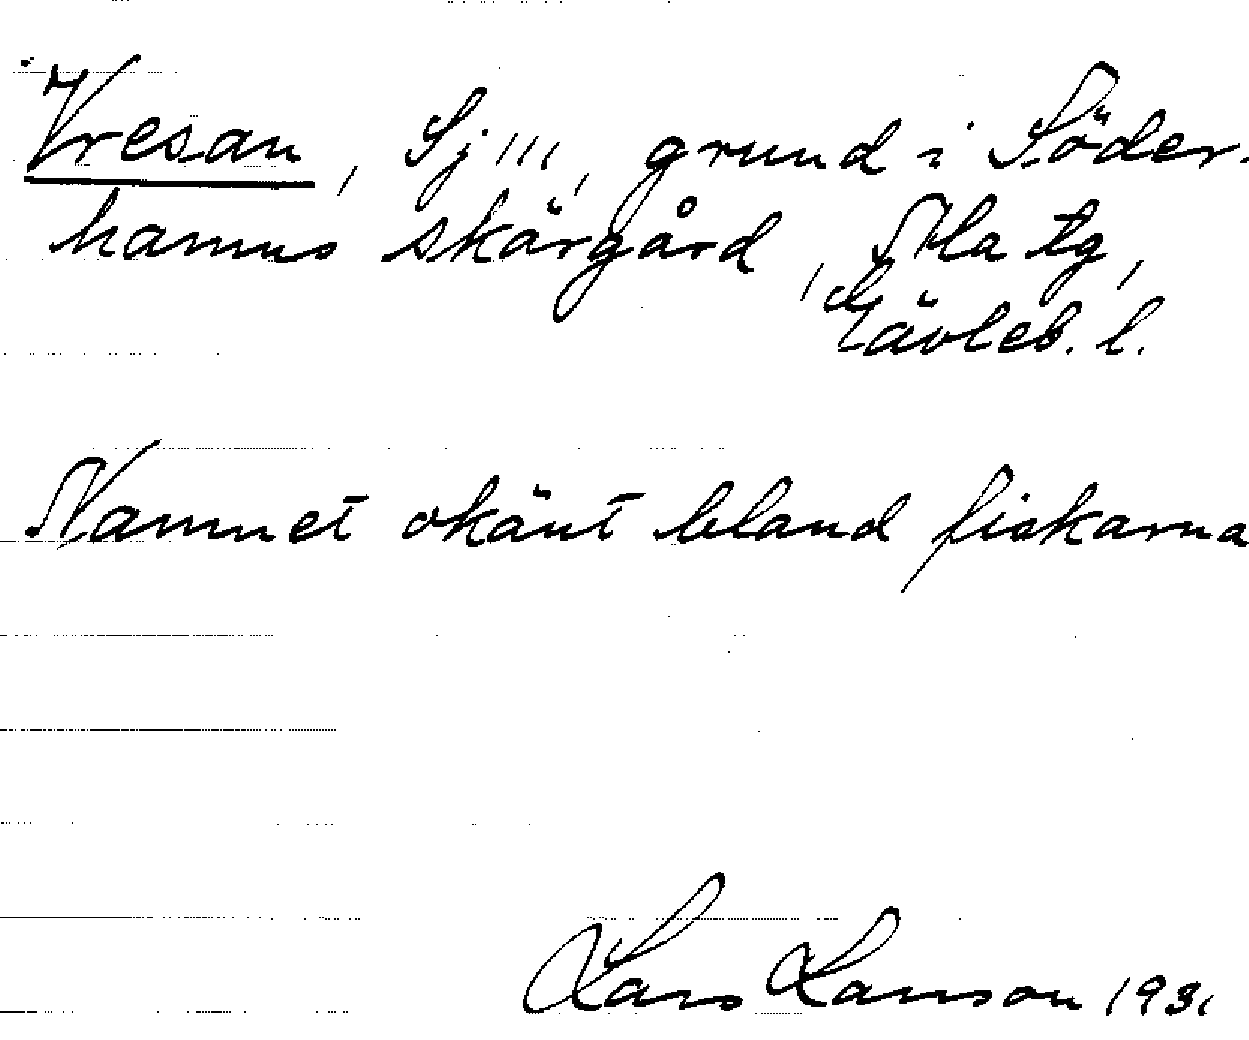 Vresan, Sj ''', grund i Söder-
hamns skärgård, Ala tg,
Gävleb. l.
Namnet okänt bland fiskarna
Lars Larsson 1931